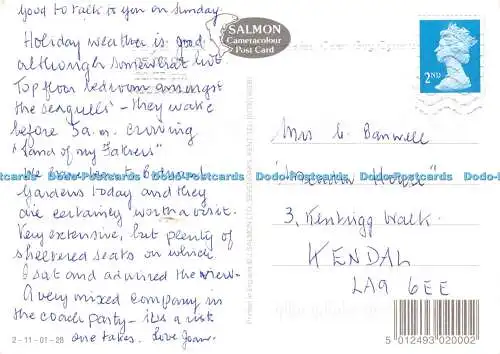 good to talk to you on Sunday
Holiday weather is good
although somewhat hot.
Top floor bedroom amongst
the seagulls - they wake
before 5 a.m. crowing
"Land of my Fathers"
We to Botanical
Gardens today and they
are certainly worth a visit.
Very extensive, but plenty of
sheltered seats on which
I sat and admired the view.
A very mixed company in
the coach party - it's a risk
one takes. Love Joan.
2-11-01-28
SALMON
Cameracolour
Post Card
Printed in England © J. SALMON LTD., SEVENOAKS, KENT. TEL:
2ND
Mrs C. Banwell
House"
3, Kentrigg Walk.
KENDAL
LA9 6EE
Dodo-Postcards Dodo-Postcards Dodo-Postcards Dodo-Postcards Dodo-Postcards
5 012493 020002